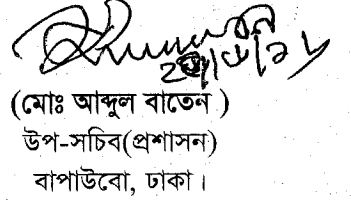 (মোঃ আব্দুল বাতেন )
উপ-সচিব(প্রশাসন)
বাপাউবো, ঢাকা।